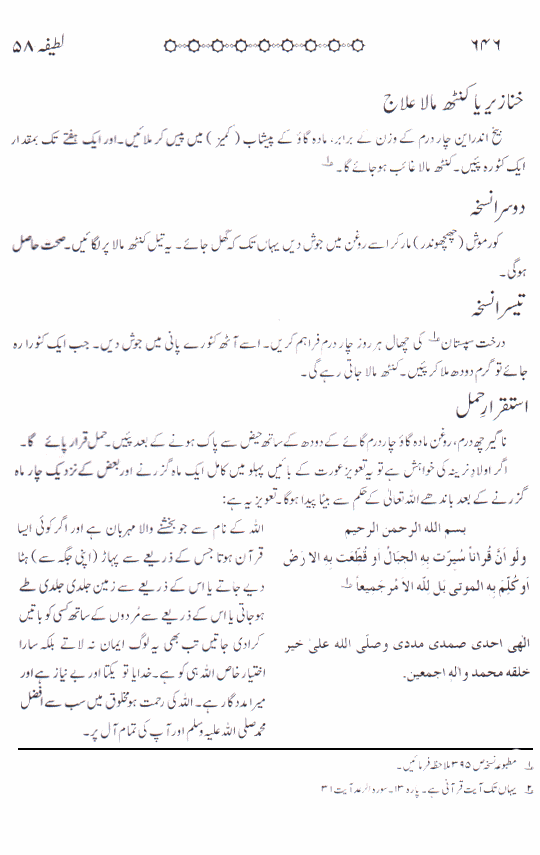 ۶۴۶ لطیفہ ۵۸
خنازیر یا کنٹھ مالا علاج
بیخ اندراین چار درم کے وزن کے برابر، مادہ گاؤ کے پیشاب ( کمیز ) میں پیس کر ملائیں۔ اور ایک ہفتے تک بمقدار
ایک کٹورہ پئیں۔ کنٹھ مالا غائب ہوجائے گا۔ ؎۱
دوسرا نسخہ
کورموش (چھچھوندر) مار کر اسے روغن میں جوش دیں یہاں تک کہ گھل جائے۔ یہ تیل کنٹھ مالا پر لگائیں۔ صحت حاصل
ہوگی۔
تیسرا نسخہ
درخت سپستان ؎۱ کی چھال ہر روز چار درم فراہم کریں۔ اسے آٹھ کٹورے پانی میں جوش دیں۔ جب ایک کٹورا رہ
جائے تو گرم دودھ ملا کر پئیں۔ کنٹھ مالا جاتی رہے گی۔
استقرارِ حمل
ناگیر چھ درم، روغن مادہ گاؤ چار درم گائے کے دودھ کے ساتھ حیض سے پاک ہونے کے بعد پئیں۔ حمل قرار پائے گا۔
اگر اولادِ نرینہ کی خواہش ہے تو یہ تعویز عورت کے بائیں پہلو میں کامل ایک ماہ گزرنے اور بعض کے نزدیک چار ماہ
گزرنے کے بعد باندھے اللہ تعالیٰ کے حکم سے بیٹا پیدا ہوگا۔ تعویز یہ ہے:
بسم اللہ الرحمن الرحیم
وَلَو اَنَّ قُراٰناً سُیِرّت بِہِ الجِبَالُ اَو قُطِّعَت بِہِ الا رَضُ
اَو کُلِّمَ بِہِ الموتی بَل لِلّٰہِ الا مُر جَمیعاً ؎۲
الٰھی احدی صمدی مددی وصلّی اللہ علیٰ خیر
خلقہ محمد والہٖ اجمعین۔
اللہ کے نام سے جو بخشنے والا مہربان ہے اور اگر کوئی ایسا
قرآن ہوتا جس کے ذریعے سے پہاڑ (اپنی جگہ سے) ہٹا
دیے جاتے یا اس کے ذریعے سے زمین جلدی جلدی طے
ہوجاتی یا اس کے ذریعے سے مُردوں کے ساتھ کسی کو باتیں
کرا دی جاتیں تب بھی یہ لوگ ایمان نہ لاتے بلکہ سارا
اختیار خاص اللہ ہی کو ہے۔ خدایا تو یکتا اور بے نیاز ہے اور
میرا مددگار ہے۔ اللہ کی رحمت ہو مخلوق میں سب سے افضل
محمد صلی اللہ علیہ وسلم اور آپ کی تمام آل پر۔
؎۱ مطبوعہ نسخہ ص ۳۹۵ ملاحظہ فرمائیں۔
؎۲ یہاں تک آیت قرآنی ہے۔ پارہ ۱۳۔ سورہ الرعد آیت ۳۱